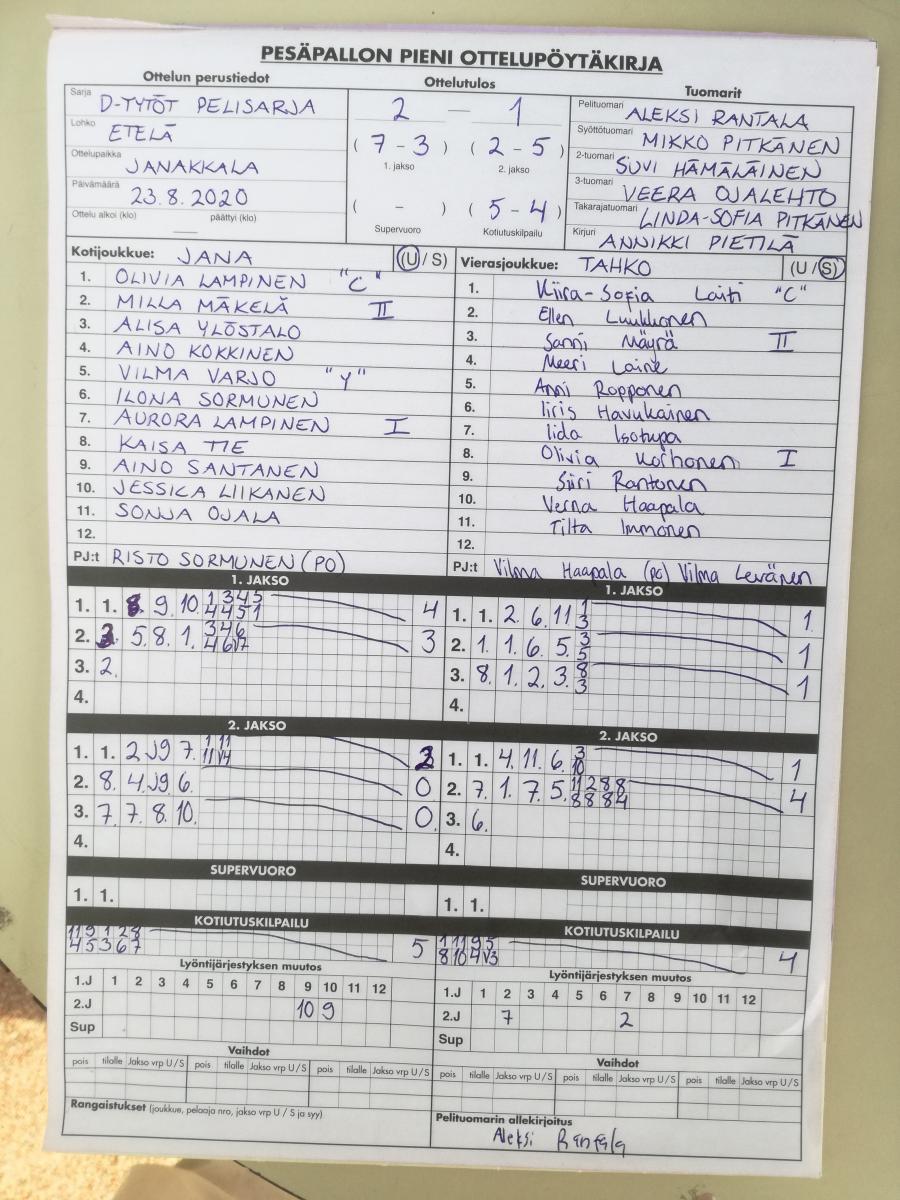 PESÄPALLON PIENI OTTELUPÖYTÄKIRJA
Ottelun perustiedot Ottelutulos Tuomarit
Sarja D-TYTÖT PELISARJA
Lohko ETELÄ
Ottelupaikka JANAKKALA
Päivämäärä 23.8.2020
Ottelu alkoi (klo) — päättyi (klo)
2 — 1
( 7 - 3 ) ( 2 - 5 )
1. jakso 2. jakso
( - ) ( 5 - 4 )
Supervuoro Kotiutuskilpailu
Pelituomari ALEKSI RANTALA
Syöttötuomari MIKKO PITKÄNEN
2-tuomari SUVI HÄMÄLÄINEN
3-tuomari VEERA OJALEHTO
Takarajatuomari LINDA-SOFIA PITKÄNEN
Kirjuri ANNIKKI PIETILÄ
Kotijoukkue: JANA (U / S)
1. OLIVIA LAMPINEN "C"
2. MILLA MÄKELÄ II
3. ALISA YLÖSTALO
4. AINO KOKKINEN
5. VILMA VARJO "Y"
6. ILONA SORMUNEN
7. AURORA LAMPINEN I
8. KAISA TIE
9. AINO SANTANEN
10. JESSICA LIIKANEN
11. SONJA OJALA
12.
PJ:t RISTO SORMUNEN (PO)
Vierasjoukkue: TAHKO (U / S)
1. Kiira-Sofia Laiti "C"
2. Ellen Luukkonen
3. Sanni Mäyrä II
4. Meeri Laine
5. Anni Ropponen
6. Iiris Havukainen
7. Iida Isotupa
8. Olivia Korhonen I
9. Siiri Rantonen
10. Verna Haapala
11. Tilta Immonen
12.
PJ:t Vilma Haapala (po) Vilma Levänen
1. JAKSO
1. 1. 8. 9. 10. 1 3 4 5 4
4 4 5 1
2. 5. 8. 1. 3 4 6 3
4 6 V7
3. 2.
4.
1. JAKSO
1. 1. 2. 6. 11 1 1
3
2. 1. 1. 6. 5. 3 1
5
3. 8. 1. 2. 3. 8 1
3
4.
2. JAKSO
1. 1. 2 J9 7. 1 11 2
11 V4
2. 8. 4. J9 6. 0
3. 7. 7. 8. 10. 0
4.
2. JAKSO
1. 1. 4. 11. 6. 3 1
10
2. 7. 1. 7. 5. 11 2 8 8 4
8 8 8 4
3. 6.
4.
SUPERVUORO
1. 1.
SUPERVUORO
1. 1.
KOTIUTUSKILPAILU
11 9 1 2 8 5
4 5 3 6 7
KOTIUTUSKILPAILU
1 11 9 5 4
8 10 4 V3
Lyöntijärjestyksen muutos
1.J 1 2 3 4 5 6 7 8 9 10 11 12
2.J 10 9
Sup
Lyöntijärjestyksen muutos
1.J 1 2 3 4 5 6 7 8 9 10 11 12
2.J 7 2
Sup
Vaihdot
pois tilalle Jakso vrp U / S pois tilalle Jakso vrp U / S pois tilalle Jakso vrp U / S
Vaihdot
pois tilalle Jakso vrp U / S pois tilalle Jakso vrp U / S pois tilalle Jakso vrp U / S
Rangaistukset (joukkue, pelaaja nro, jakso vrp U / S ja syy)
Pelituomarin allekirjoitus
Aleksi Rantala